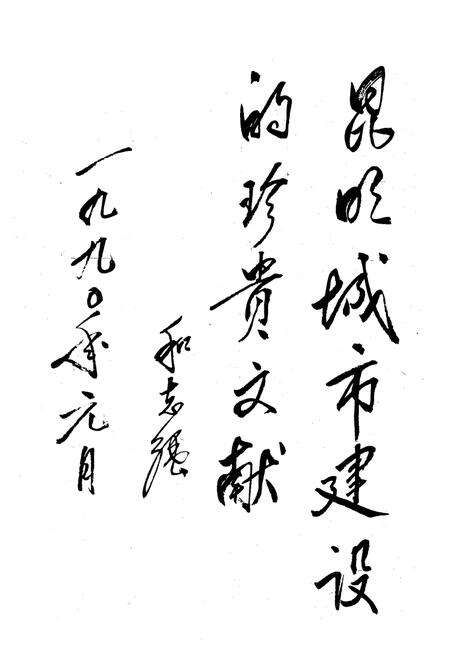 昆明城市建设
的珍贵文献
和志强
一九九〇年元月